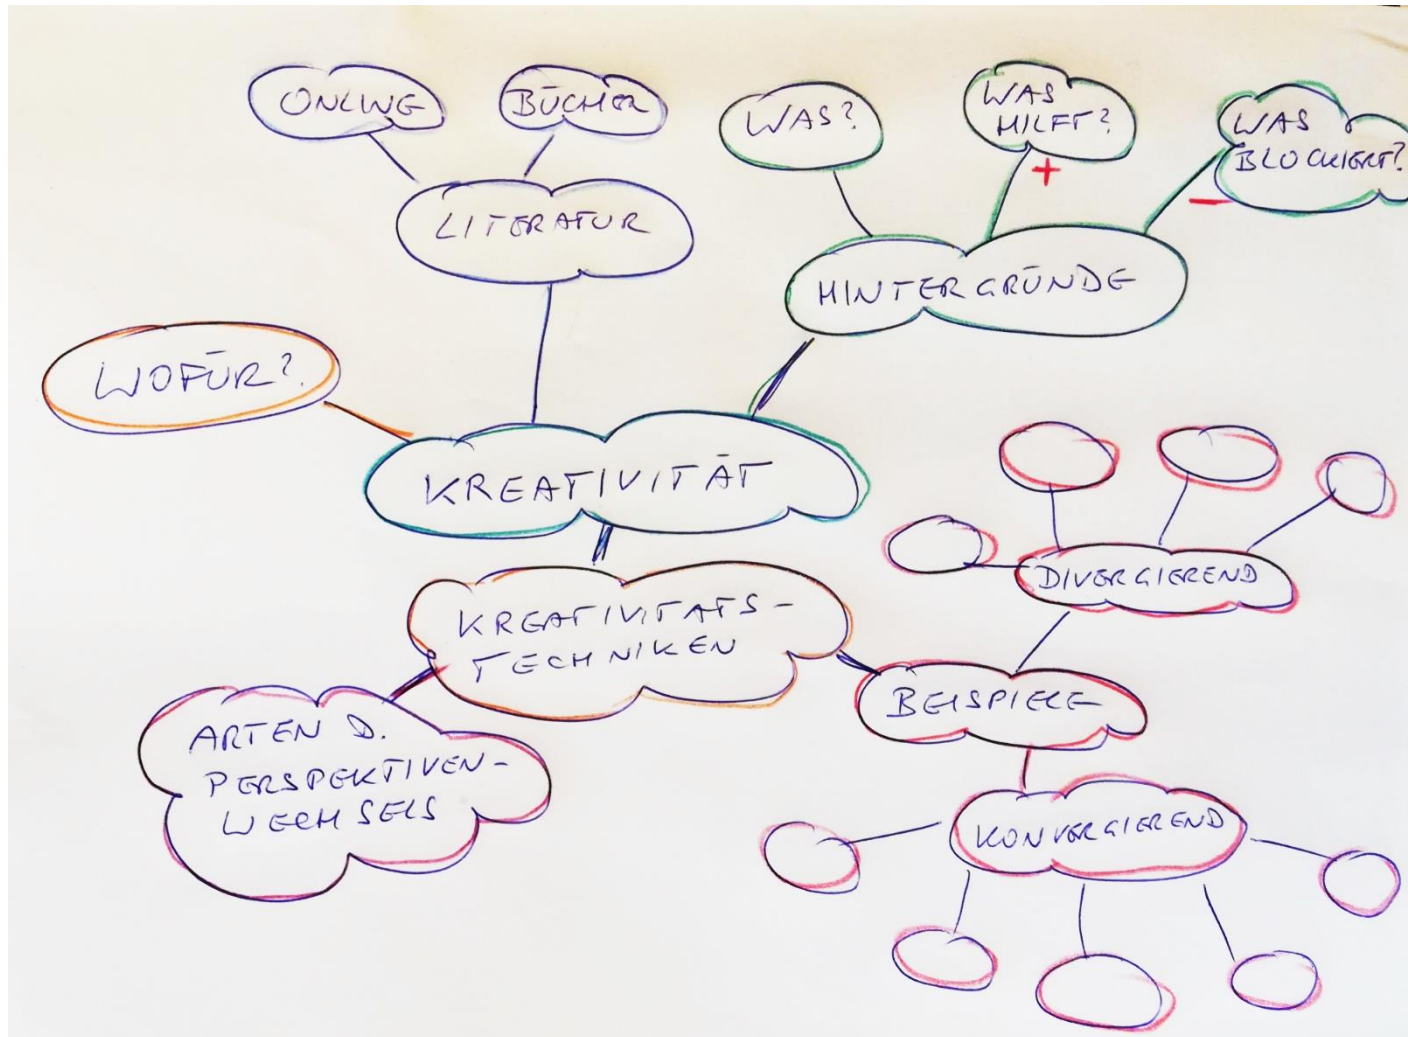 ONLINE
BÜCHER
WAS?
WAS
HILFT?
+
WAS
BLOCKIERT?
-
LITERATUR
HINTERGRÜNDE
WOFÜR?
KREATIVITÄT
DIVERGIEREND
KREATIVITÄTS-
TECHNIKEN
BEISPIELE
ARTEN D.
PERSPEKTIVEN-
WECHSELS
KONVERGIEREND